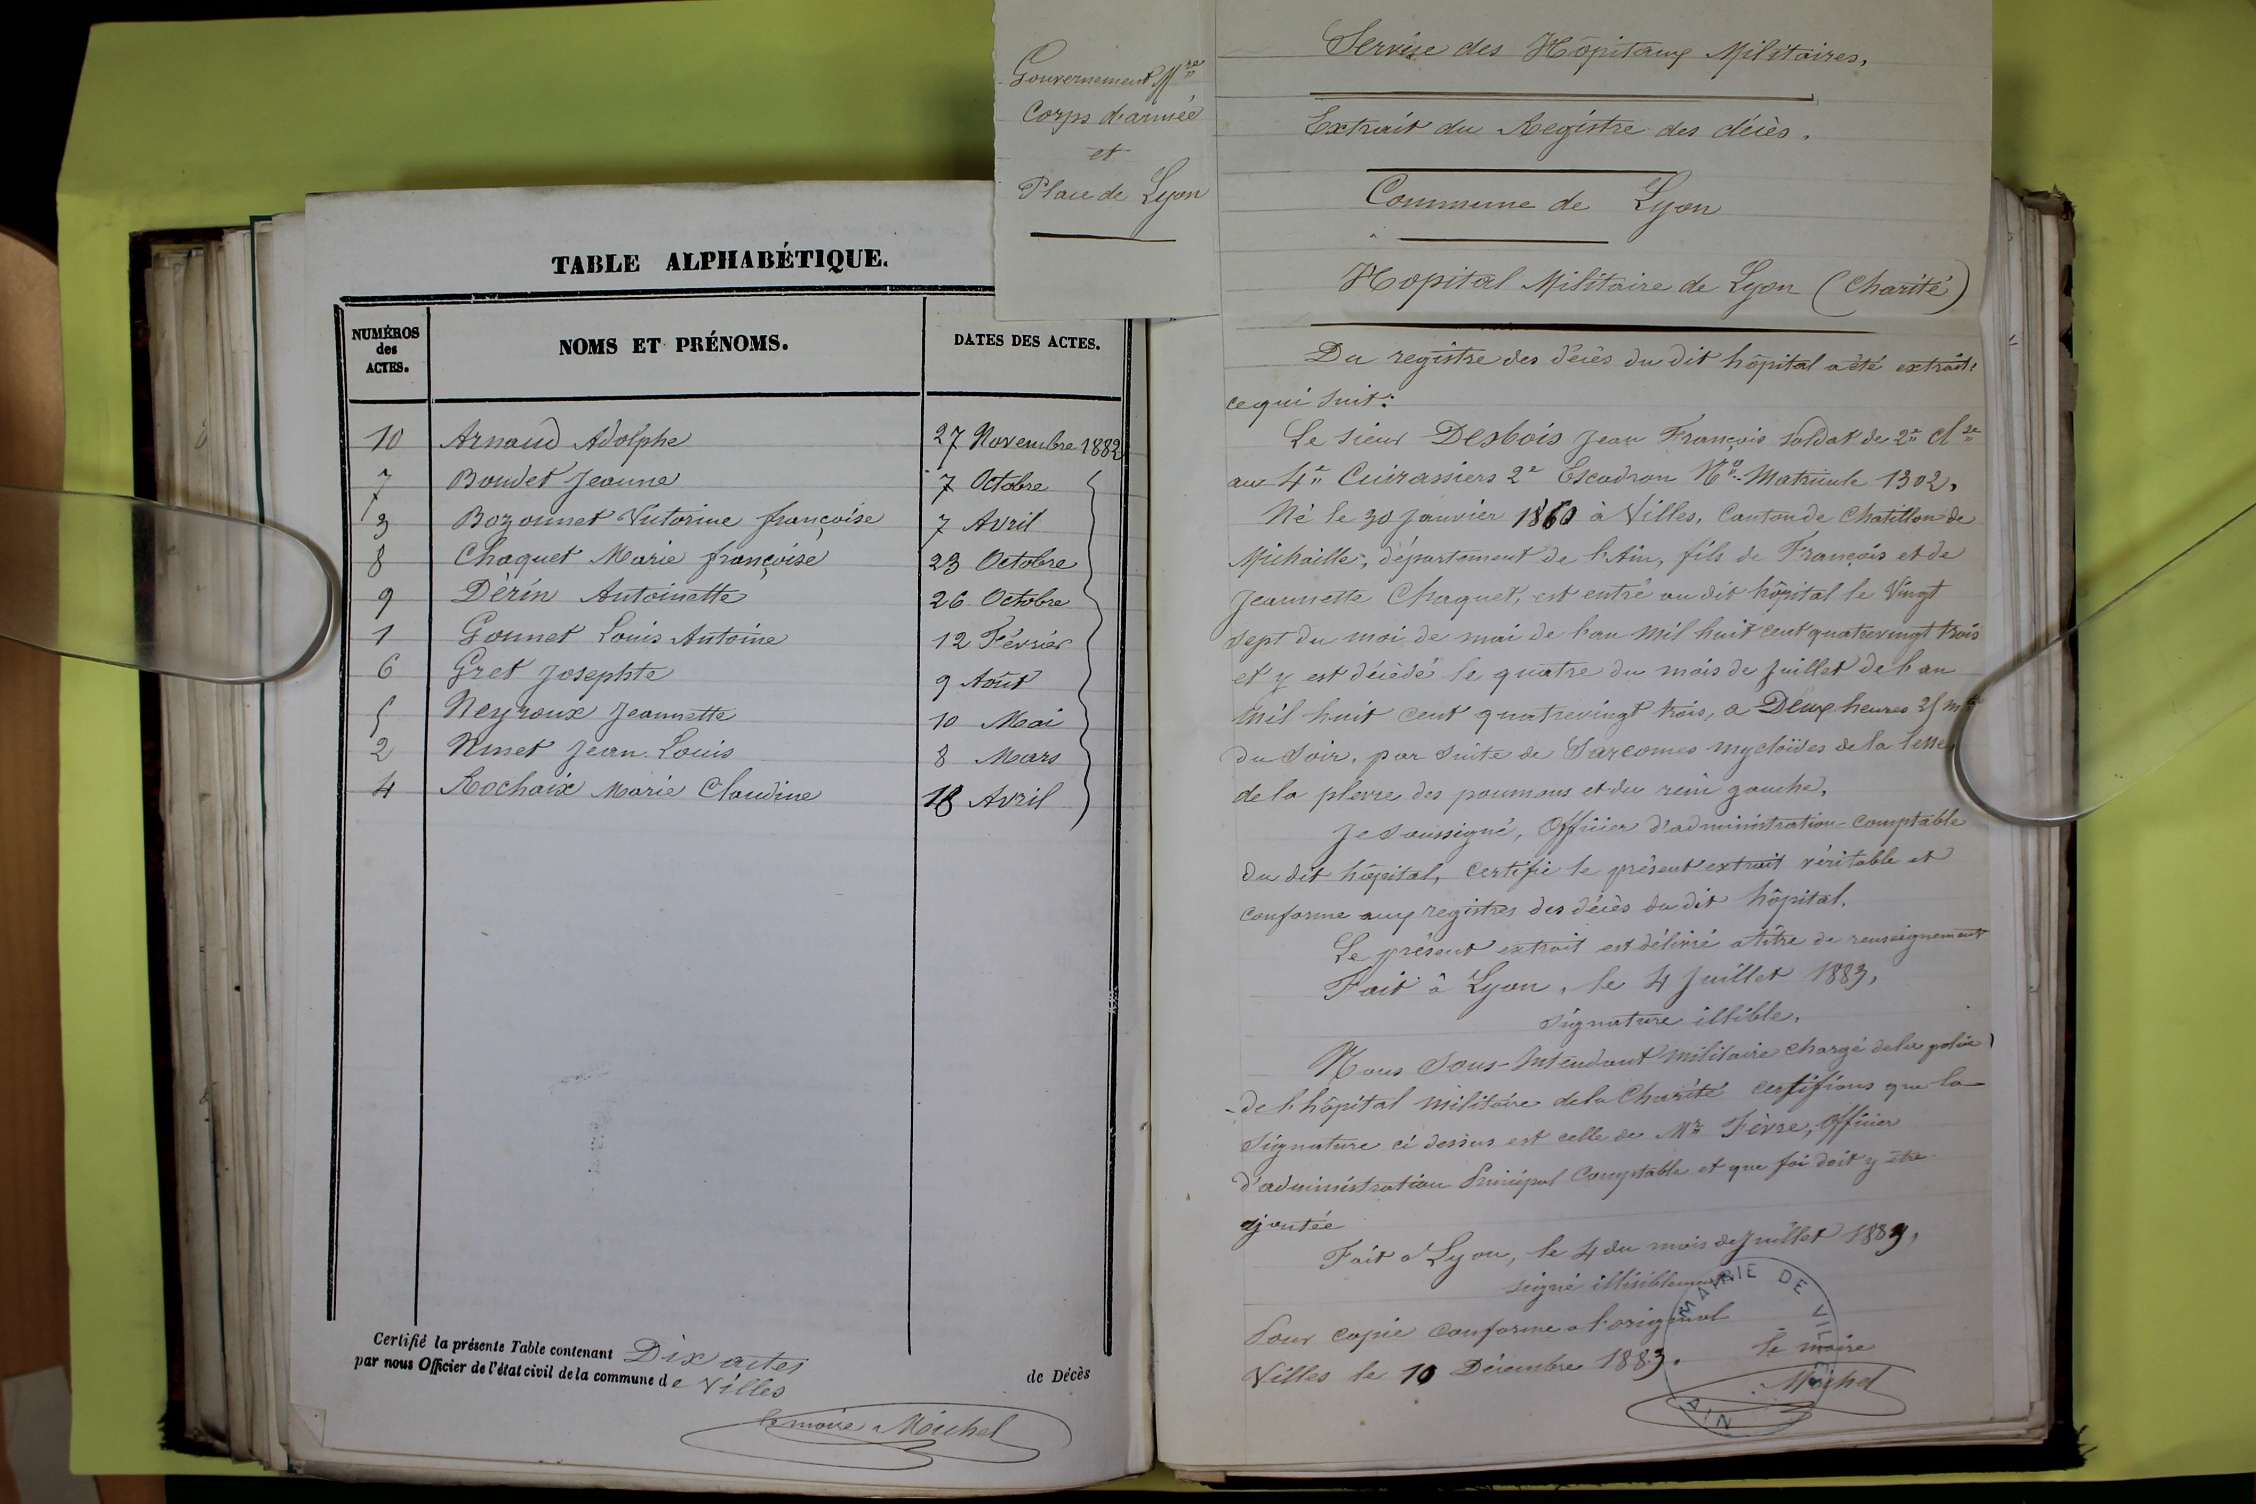 TABLE ALPHABÉTIQUE.
NUMÉROS des ACTES.
NOMS ET PRÉNOMS.
DATES DES ACTES.
10 Arnaud Adolphe 27 Novembre 1882
7 Boudet Jeanne 7 Octobre
3 Bozonnet Victorine françoise 7 Avril
8 Chaquet Marie françoise 23 Octobre
9 Dérin Antoinette 26 Octobre
1 Gonnet Louis Antoine 12 Février
6 Gret Josephte 9 Août
5 Neyroux Jeannette 10 Mai
2 Ninet Jean Louis 8 Mars
4 Rochaix Marie Claudine 18 Avril
Certifié la présente Table contenant Dix actes de Décès
par nous Officier de l'état civil de la commune de Villes
le maire Michel
Gouvernement Mre
Corps d'armée
et
Place de Lyon
Service des Hôpitaux Militaires,
Extrait du Registre des décès.
Commune de Lyon
Hopital Militaire de Lyon (Charité)
Du registre des décès du dit hôpital a été extrait
ce qui suit:
Le sieur Desbois Jean François soldat de 2e Clse
au 4e Cuirassiers 2e Escadron No Matricule 1302,
Né le 30 Janvier 1860 à Villes, Canton de Chatillon de
Michaille, département de l'Ain, fils de François et de
Jeannette Chaquet, est entré au dit hôpital le Vingt
sept du moi de mai de l'an mil huit cent quatrevingt trois
et y est décédé le quatre du mois de Juillet de l'an
mil huit cent quatrevingt trois, a Deux heures 25 mtes
du soir, par suite de Sarcomes mycloïdes de la
de la plevre des poumons et du rein gauche,
Je soussigné, Officier d'administration-comptable
du dit hôpital, certifie le présent extrait véritable et
conforme aux registres des décès du dit hôpital.
Le présent extrait est délivré a titre de renseignement
Fait à Lyon, le 4 Juillet 1883,
signature illible,
Nous Sous-Intendant militaire chargé de la police
de l'hôpital militaire de la Charité certifions que la
signature ci dessus est celle de Mr Fèvre, Officier
d'administration Principal Comptable et que foi doit y être
ajoutée
Fait à Lyon, le 4 du mois de Juillet 1883,
seigné illisiblement
Pour copie conforme a l'original
Villes le 10 Décembre 1883.
le maire
Michel
MAIRIE DE VILLES
AIN